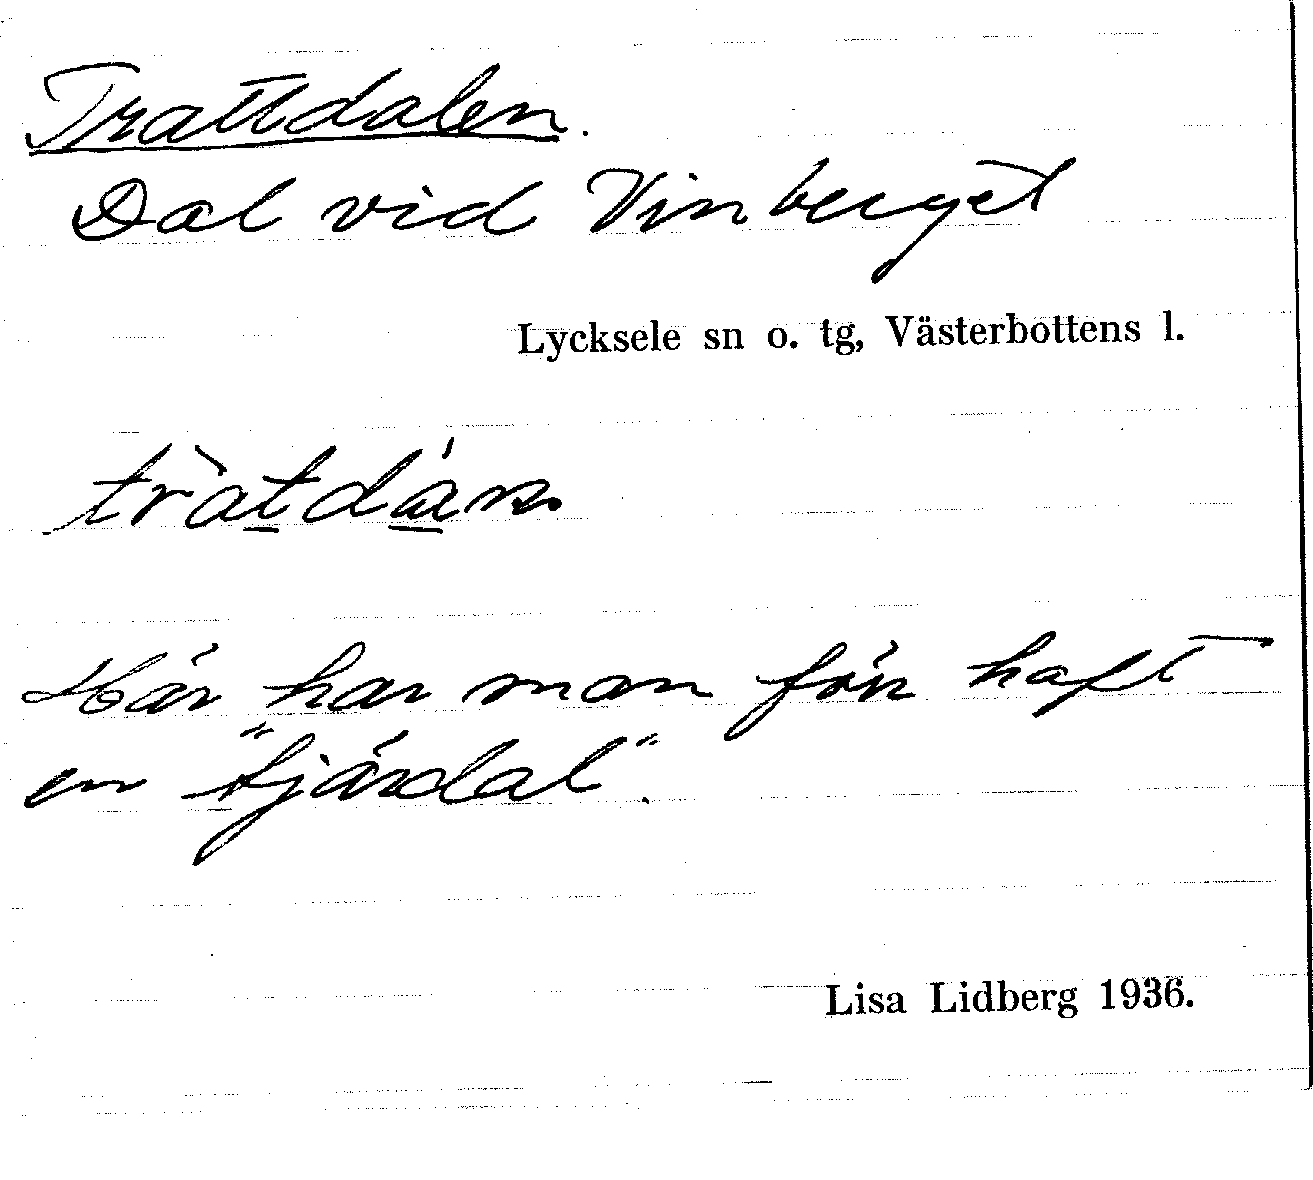 Trattdalen.
Dal vid Vinberget
Lycksele sn o. tg, Västerbottens l.
tràtdán.
Här har man förr haft
en "tjärdal".
Lisa Lidberg 1936.